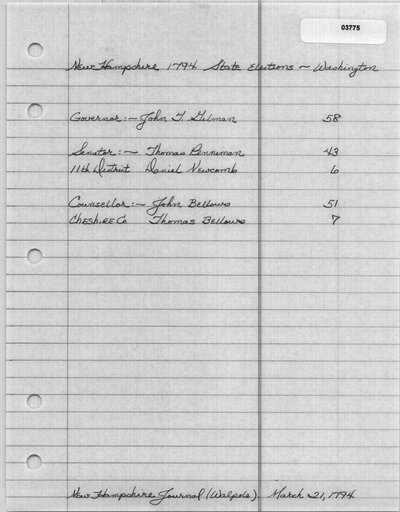 03775
New Hampshire 1794 State Elections ~ Washington
Governor:~ John T. Gilman 58
Senator:~ Thomas Penniman 43
11th District Daniel Newcomb 6
Counsellor:~ John Bellows 51
Cheshire Co Thomas Bellows 7
New Hampshire Journal (Walpole). March 21, 1794